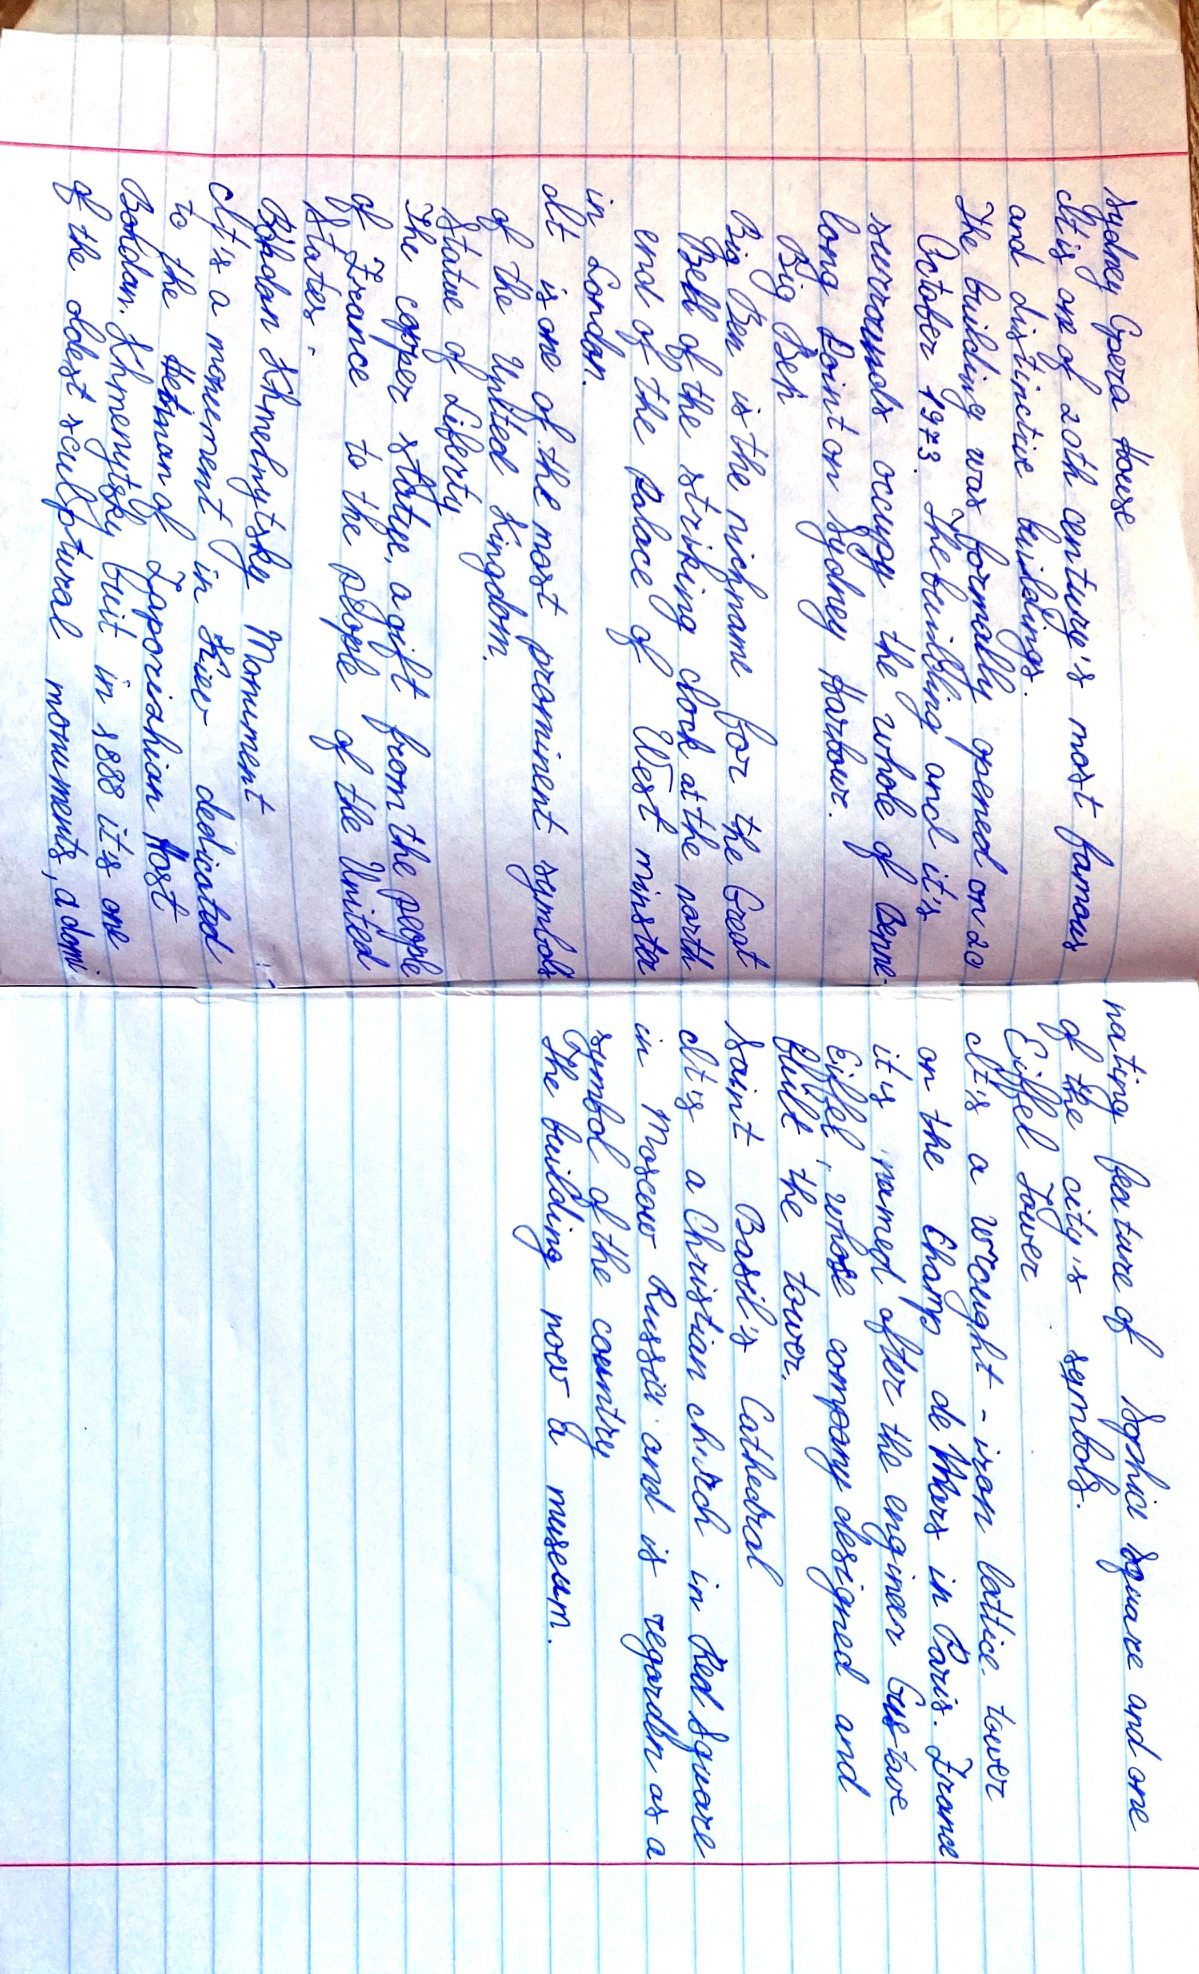 Sydney Opera House
It is one of 20th century's most famous
and distinctive buildings.
The building was formally opened on 20
October 1973. The building and it's
surrounds occupy the whole of Benne-
long Point on Sydney Harbour.
Big Ben
Big Ben is the nickname for the Great
Bell of the striking clock at the north
end of the Palace of West minster
in London.
It is one of the most prominent symbols
of the United Kingdom.
Statue of Liberty
The copper statue, a gift from the people
of France to the people of the United
States.
Bohdan Khmelnytsky Monument
It's a monument in Kiev dedicated
to the Hetman of Zaporizhian Host
Bohdan Khmenytsky buit in 1888 it's one
of the oldest sculptural monuments, a domi-
nating feature of Sophia Square and one
of the city's symbols.
Eiffel Tower
It's a wrought-iron lattice tower
on the Champ de Mars in Paris. France
it is named after the engineer Gustave
Eiffel, whose company designed and
built the tower.
Saint Basil's Cathedral
It's a Christian church in Red Square
in Moscow Russia and is regarden as a
symbol of the country
The building now a museum.